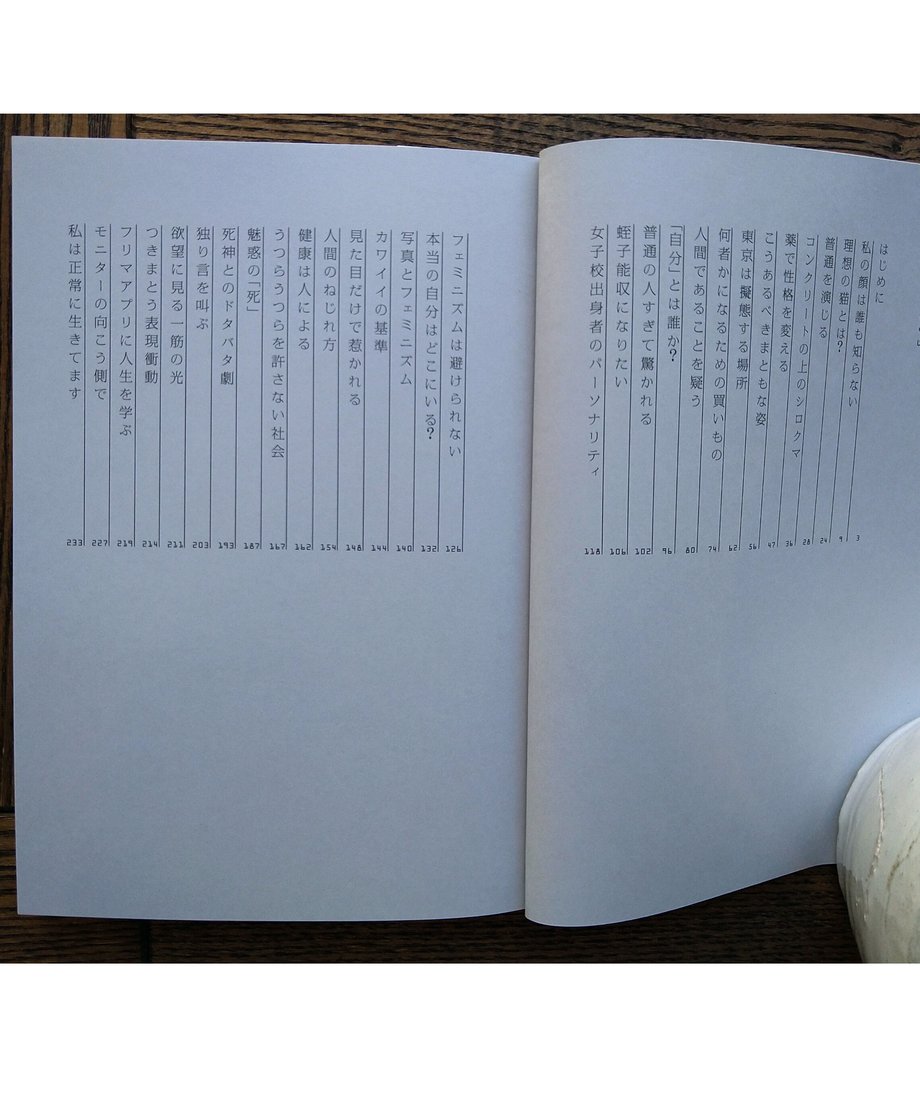 はじめに 3
私の顔は誰も知らない 9
理想の猫とは? 24
普通を演じる 28
コンクリートの上のシロクマ 36
薬で性格を変える 47
こうあるべきまともな姿 56
東京は擬態する場所 62
何者かになるための買いもの 74
人間であることを疑う 80
「自分」とは誰か? 96
普通の人すぎて驚かれる 102
蛭子能収になりたい 106
女子校出身者のパーソナリティ 118
フェミニズムは避けられない 126
本当の自分はどこにいる? 132
写真とフェミニズム 140
カワイイの基準 144
見た目だけで惹かれる 148
人間のねじれ方 154
健康は人による 162
うつらうつらを許さない社会 167
魅惑の「死」 187
死神とのドタバタ劇 193
独り言を叫ぶ 203
欲望に見る一筋の光 211
つきまとう表現衝動 214
フリマアプリに人生を学ぶ 219
モニターの向こう側で 227
私は正常に生きてます 233